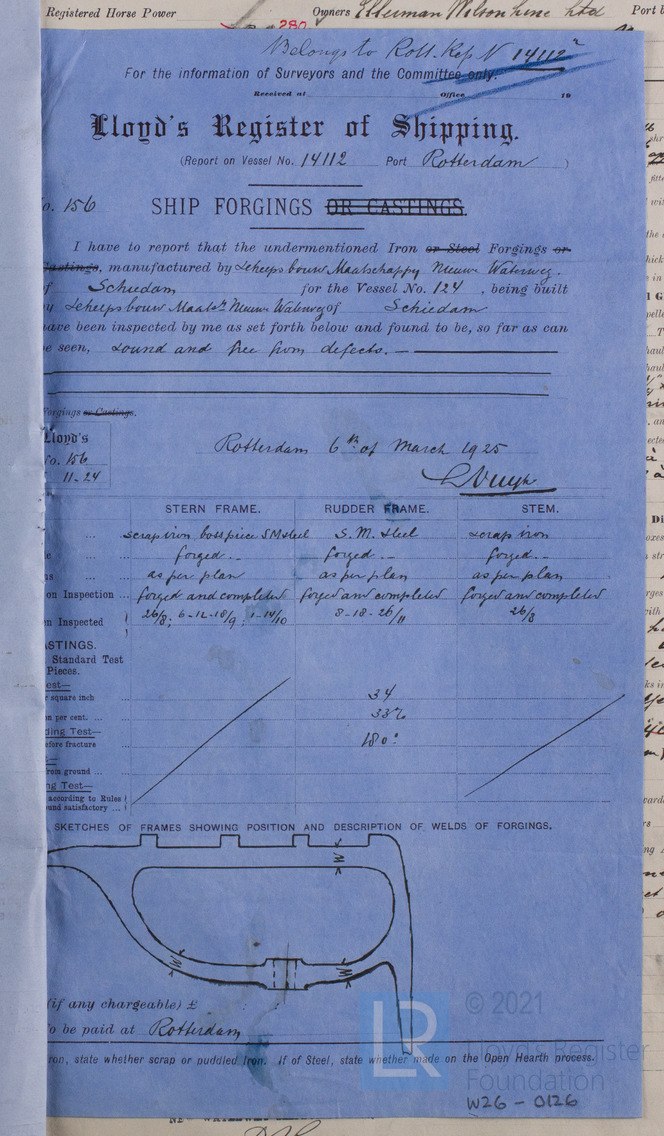 Registered Horse Power Owners Ellerman Wilson Line Ltd Port
280
Belongs to Rott. Rep N 14112
For the information of Surveyors and the Committee only.
Received at Office 19
Lloyd's Register of Shipping.
(Report on Vessel No. 14112 Port Rotterdam )
o. 156 SHIP FORGINGS OR CASTINGS.
I have to report that the undermentioned Iron or Steel Forgings or
Castings, manufactured by Scheepsbouw Maatschappy Nieuwe Waterweg.
f Schiedam for the Vessel No. 124 , being built
y Scheepsbouw Maats. Nieuwe Waterweg of Schiedam
ave been inspected by me as set forth below and found to be, so far as can
e seen, sound and free from defects. —
Forgings or Castings.
Lloyd's
No. 156
11-24
Rotterdam 6th of March 1925
STERN FRAME. RUDDER FRAME. STEM.
... scrap iron bosspiece S M steel S. M. steel scrap iron
e ... forged. - forged. - forged. -
ns ... as per plan as per plan as per plan
on Inspection ... forged and completed forged and completed forged and completed
en Inspected 26/8; 6-12-18/9; 1-14/10 8-18-26/11 26/8
ASTINGS.
Standard Test
Pieces.
est—
r square inch ... 34
n per cent. ... 33%
ding Test—
efore fracture 180°
rom ground ...
ng Test—
according to Rules
und satisfactory ...
SKETCHES OF FRAMES SHOWING POSITION AND DESCRIPTION OF WELDS OF FORGINGS.
W
W
W
(if any chargeable) £ : :
o be paid at Rotterdam
ron, state whether scrap or puddled Iron. If of Steel, state whether made on the Open Hearth process.
LR
© 2021
Lloyd's Register
Foundation
W26 - 0126